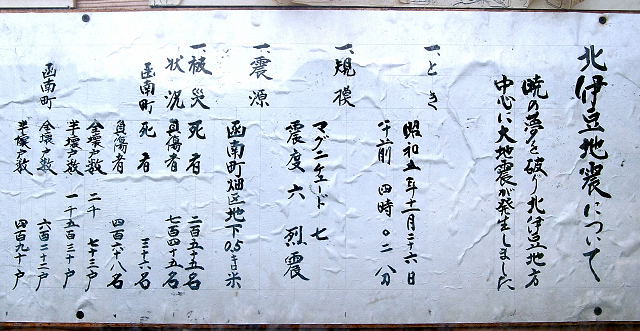 北伊豆地震について
暁の夢を破り北伊豆地方
中心に大地震が発生しました
一、とき
昭和五年十一月二十六日
午前 四時〇二分
一、規模
マグニチュード 七
震度 六 烈震
一、震源
函南町畑区地下0.5キロ米
一、被災状況
死者 二百五十五名
負傷者 七百四十五名
函南町 死者 三十六名
負傷者 四百六十八名
全壊戸数 二千七十三戸
半壊戸数 一千五百三十戸
函南町 全壊戸数 六百十二戸
半壊戸数 四百九十戸